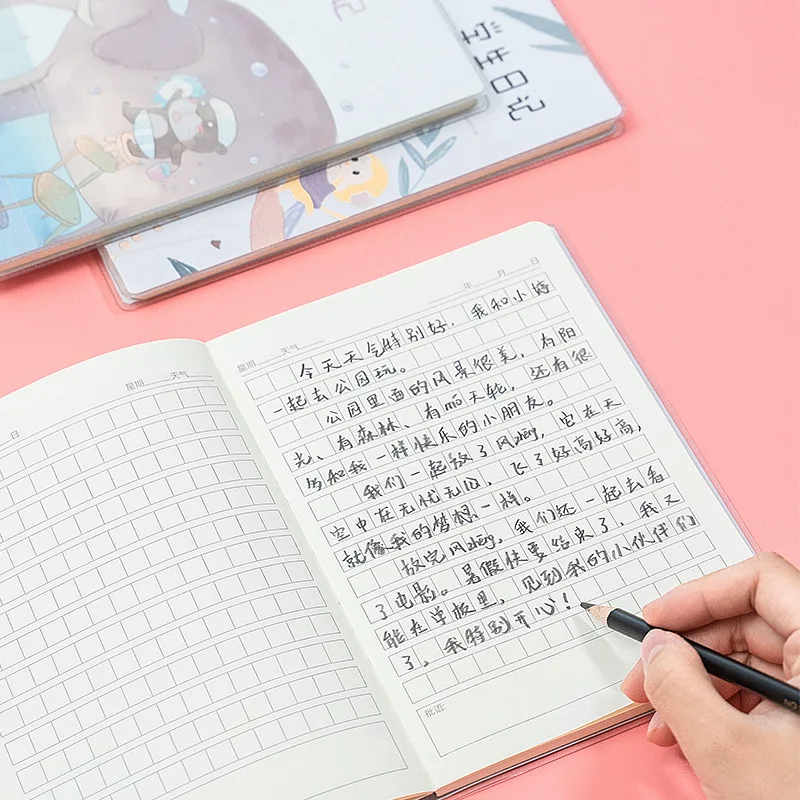 记
学生日记
日
星期 天气
年 月 日
星期 天气
今天天气特别好,我和小婷
一起去公园玩。
公园里面的风景很美,有阳
光、有森林、有摩天轮,还有很
多和我一样快乐的小朋友。
我们一起放了风zheng,它在天
空中在无忧无虑,飞了好高好高,
就像我的梦想一样。
放完风zheng,我们还一起去看
了电影。暑假快要结束了,我又
能在学校里,见到我的小伙伴们
了,我特别开心!
批语: